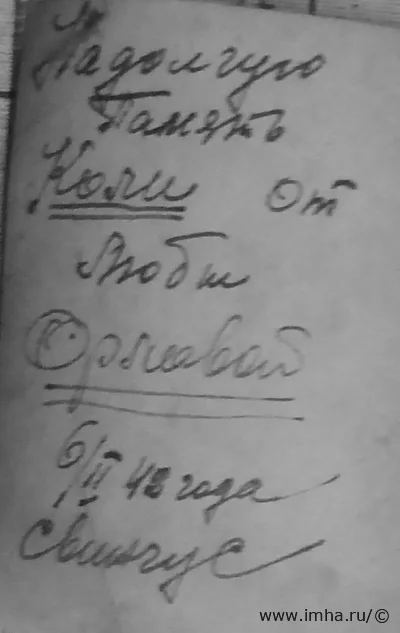 На долгую
Память
Коли от
Любы
Орловой
6/II 48 года
Свингус
www.imha.ru/©